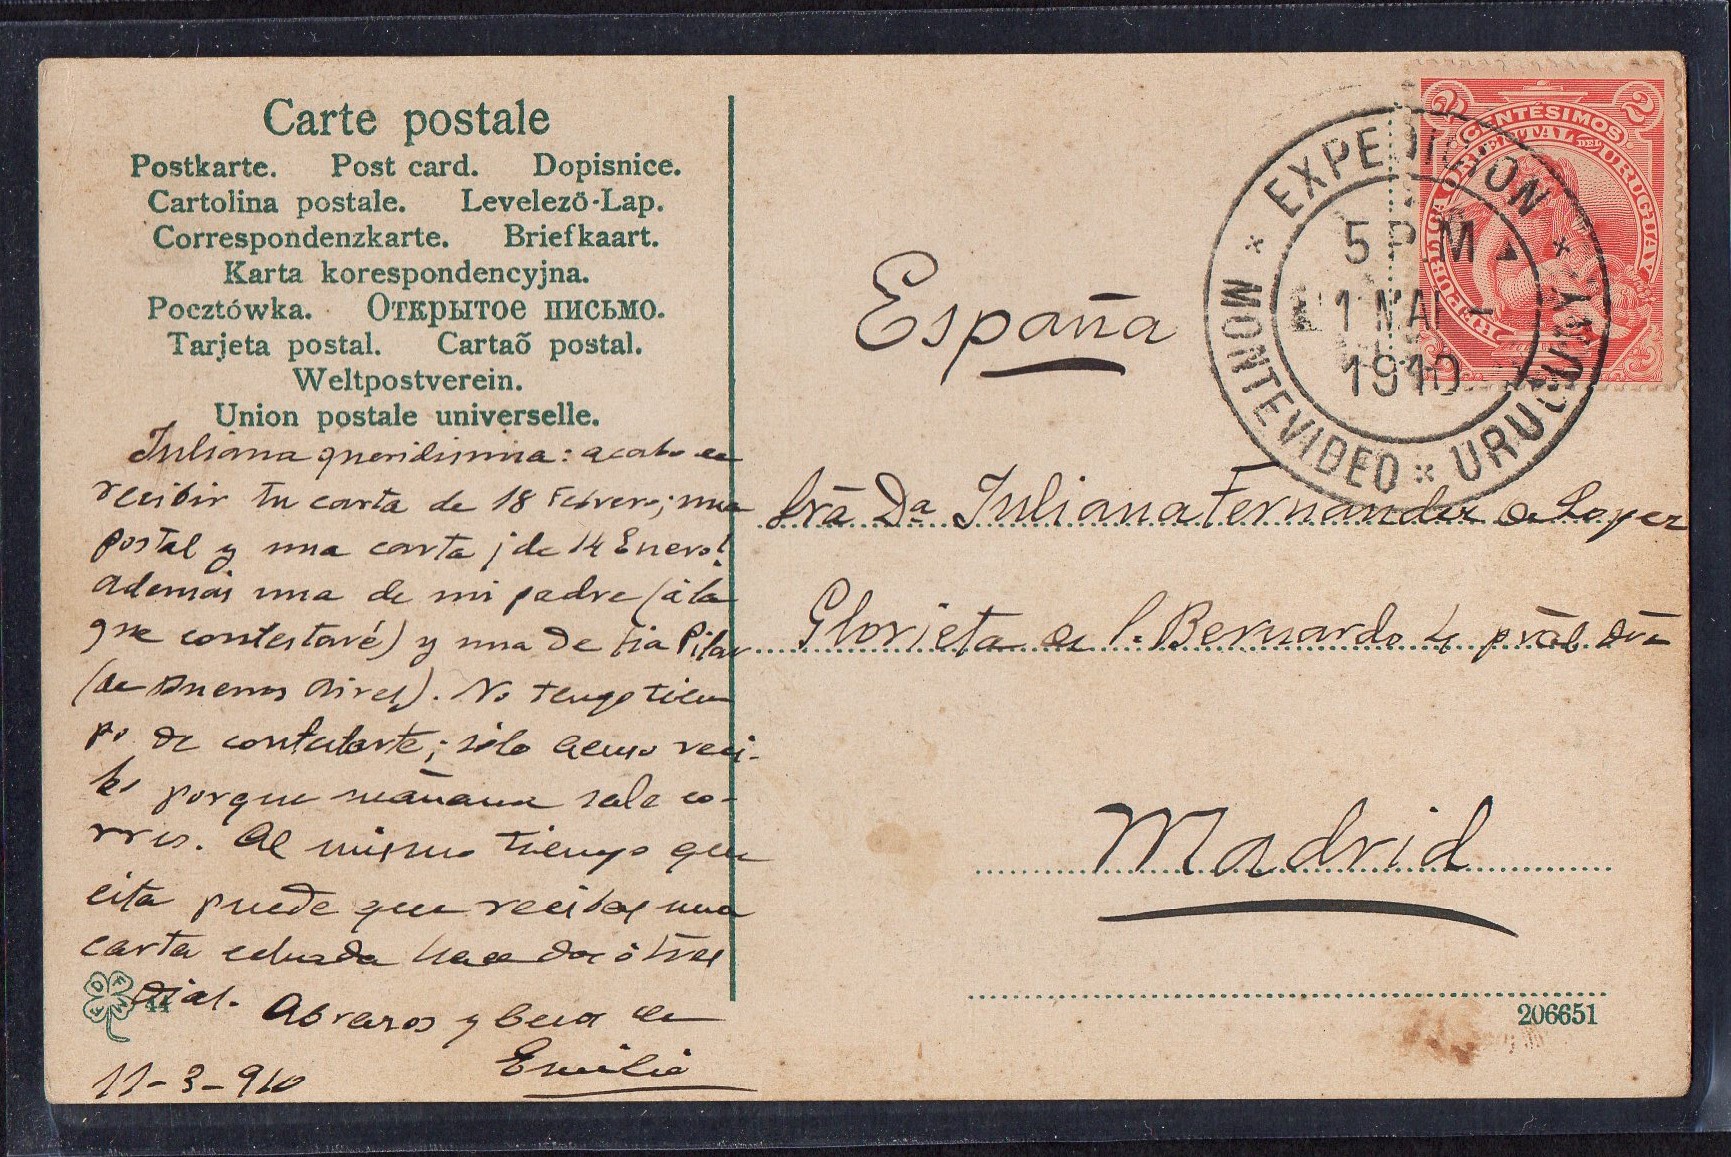 Carte postale
Postkarte. Post card. Dopisnice.
Cartolina postale. Levelező-Lap.
Correspondenzkarte. Briefkaart.
Karta korespondencyjna.
Pocztówka. Открытое письмо.
Tarjeta postal. Cartaõ postal.
Weltpostverein.
Union postale universelle.
Juliana queridisima: acabo de
recibir tu carta de 18 Febrero; una
postal y una carta ¡de 14 Enero!
además una de mi padre (á la
que contestaré) y una de tia Pilar
(de Buenos Aires). No tengo tiem
po de contestarte; sólo acuso reci-
bo porque mañana sale co-
rreo. Al mismo tiempo que
esta puede que recibas una
carta echada hace dos ó tres
dias. Abrazos y besos de
Emilio
11-3-910
44
España
Sra Da Juliana Fernandez de Lopez
Glorieta de S. Bernardo 4 pral dra
Madrid
206651
EXPEDICION
MONTEVIDEO URUGUAY
5 P.M
11 MAR
1910
2 CENTÉSIMOS 2
REPUBLICA ORIENTAL DEL URUGUAY